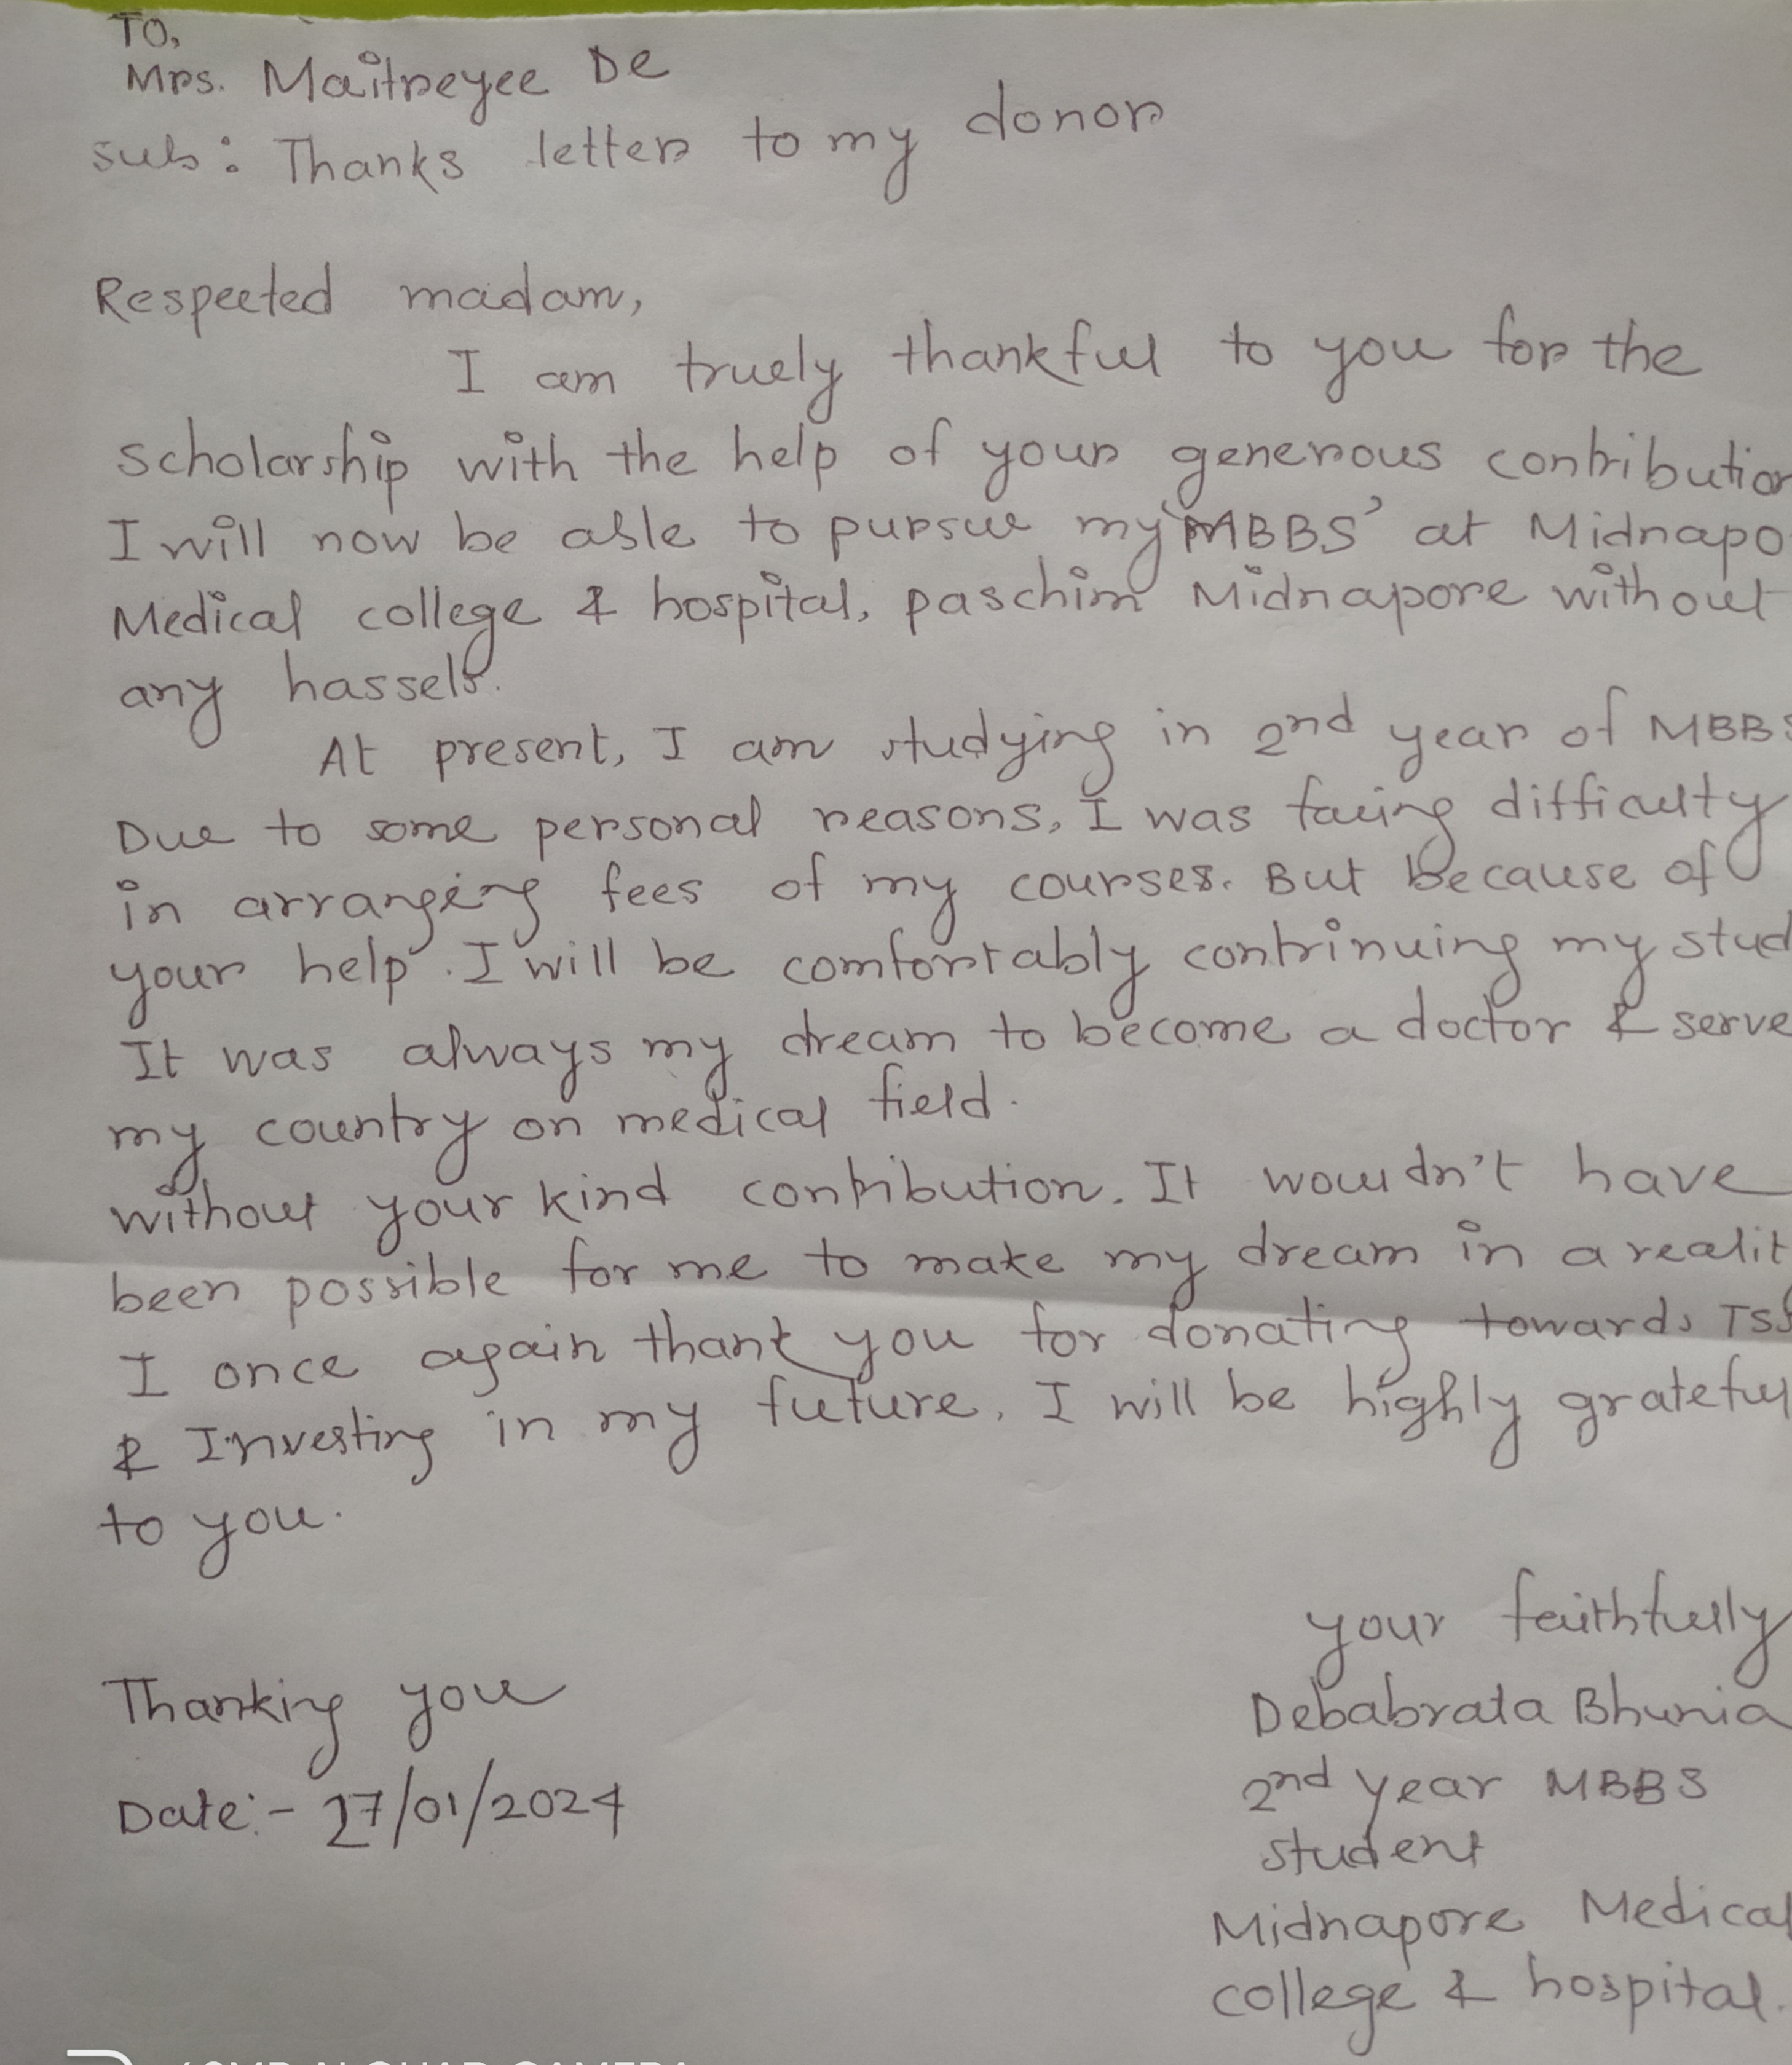 TO,
Mrs. Maitreyee De
sub: Thanks letter to my donor
Respected madam,
I am truely thankful to you for the
scholarship with the help of your generous contribution
I will now be able to pursue my 'MBBS' at Midnapo
Medical college & hospital, paschim Midnapore without
any hassels.
At present, I am studying in 2nd year of MBBS
Due to some personal reasons, I was facing difficulty
in arranging fees of my courses. But because of
your help. I will be comfortably contrinuing my stud
It was always my dream to become a doctor & serve
my country on medical field.
without your kind contribution. It wouldn't have
been possible for me to make my dream in a realit
I once again thank you for donating towards TSS
& Investing in my future. I will be highly grateful
to you.
your faithfully
Thanking you
Debabrata Bhunia
Date:- 27/01/2024
2nd year MBBS
student
Midnapore Medical
college & hospital.